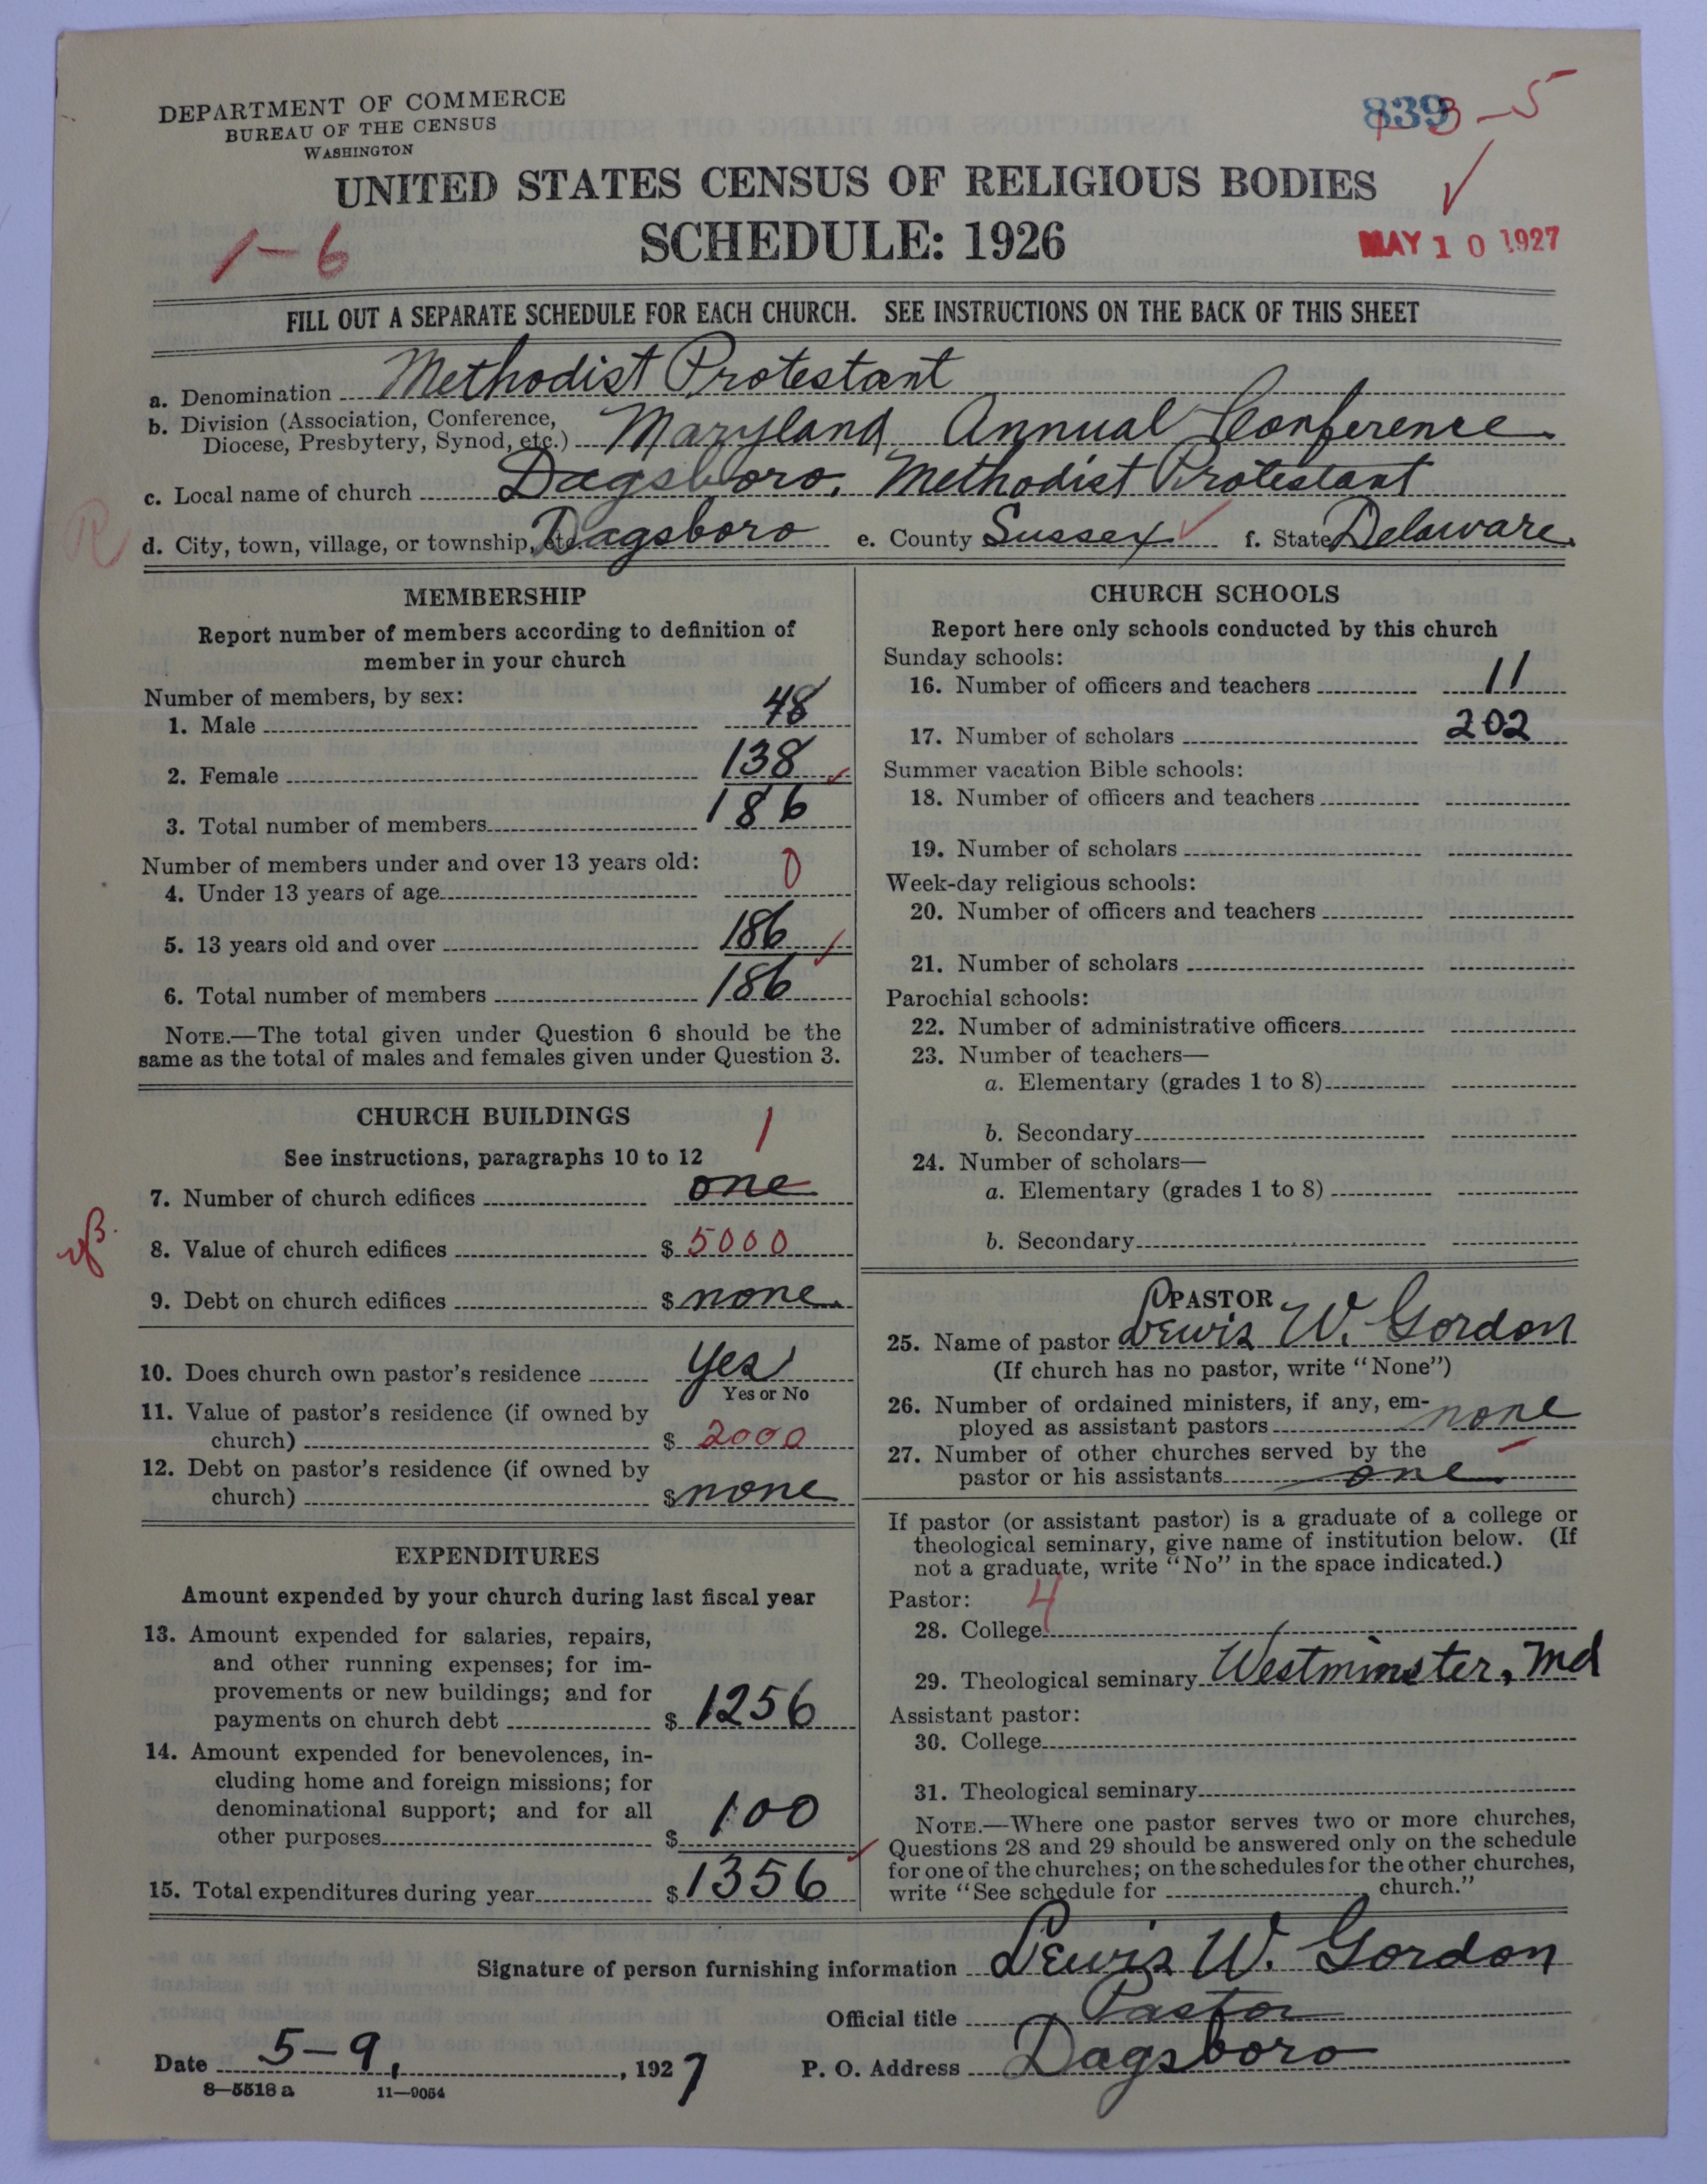 DEPARTMENT OF COMMERCE
BUREAU OF THE CENSUS
WASHINGTON
839 3-5
UNITED STATES CENSUS OF RELIGIOUS BODIES
SCHEDULE: 1926
1-6
MAY 10 1927
FILL OUT A SEPARATE SCHEDULE FOR EACH CHURCH. SEE INSTRUCTIONS ON THE BACK OF THIS SHEET
a. Denomination Methodist Protestant
b. Division (Association, Conference,
Diocese, Presbytery, Synod, etc.) Maryland Annual Conference
c. Local name of church Dagsboro, Methodist Protestant
R
d. City, town, village, or township, etc. Dagsboro e. County Sussex f. State Delaware
MEMBERSHIP
Report number of members according to definition of
member in your church
Number of members, by sex:
1. Male 48
2. Female 138
3. Total number of members 186
Number of members under and over 13 years old:
4. Under 13 years of age 0
5. 13 years old and over 186
6. Total number of members 186
NOTE.—The total given under Question 6 should be the
same as the total of males and females given under Question 3.
CHURCH BUILDINGS
See instructions, paragraphs 10 to 12
1
7. Number of church edifices one
8. Value of church edifices $ 5000
9. Debt on church edifices $ none
10. Does church own pastor's residence yes
Yes or No
11. Value of pastor's residence (if owned by
church) $ 2000
12. Debt on pastor's residence (if owned by
church) $ none
EXPENDITURES
Amount expended by your church during last fiscal year
13. Amount expended for salaries, repairs,
and other running expenses; for im-
provements or new buildings; and for
payments on church debt $ 1256
14. Amount expended for benevolences, in-
cluding home and foreign missions; for
denominational support; and for all
other purposes $ 100
15. Total expenditures during year $ 1356
CHURCH SCHOOLS
Report here only schools conducted by this church
Sunday schools:
16. Number of officers and teachers 11
17. Number of scholars 202
Summer vacation Bible schools:
18. Number of officers and teachers
19. Number of scholars
Week-day religious schools:
20. Number of officers and teachers
21. Number of scholars
Parochial schools:
22. Number of administrative officers
23. Number of teachers—
a. Elementary (grades 1 to 8)
b. Secondary
24. Number of scholars—
a. Elementary (grades 1 to 8)
b. Secondary
PASTOR
25. Name of pastor Lewis W. Gordon
(If church has no pastor, write "None")
26. Number of ordained ministers, if any, em-
ployed as assistant pastors none
27. Number of other churches served by the
pastor or his assistants one
If pastor (or assistant pastor) is a graduate of a college or
theological seminary, give name of institution below. (If
not a graduate, write "No" in the space indicated.)
Pastor: 4
28. College
29. Theological seminary Westminster, Md
Assistant pastor:
30. College
31. Theological seminary
NOTE.—Where one pastor serves two or more churches,
Questions 28 and 29 should be answered only on the schedule
for one of the churches; on the schedules for the other churches,
write "See schedule for , church."
Signature of person furnishing information Lewis W. Gordon
Official title Pastor
Date 5-9, , 1927 P. O. Address Dagsboro
8—5518 a 11—9054